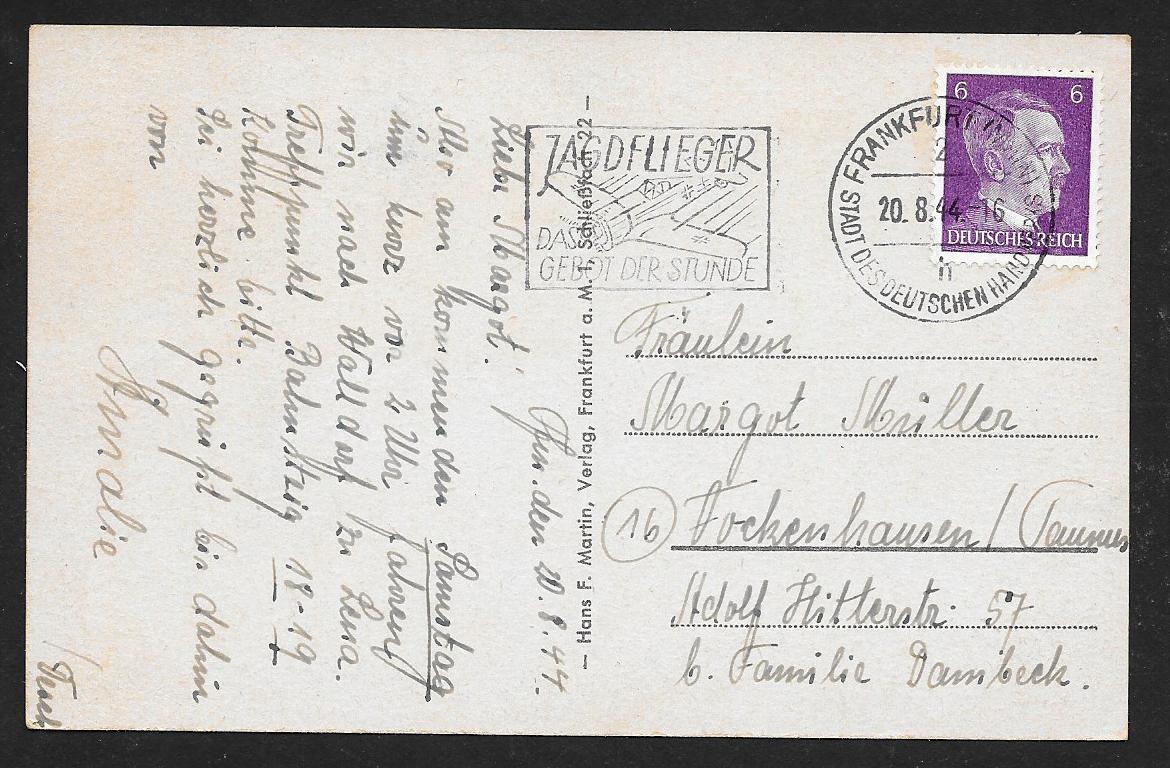 Ffm. den 20.8.44.
Liebe Margot!
Also am kommenden Samstag
um kurz vor 2 Uhr fahren
wir nach Walldorf zu Lena.
Treffpunkt Bahnsteig 18-19
Komme bitte.
Sei herzlich gegrüßt bis dahin
von
Amalie
– Hans F. Martin, Verlag, Frankfurt a. M. 1, Schließfach 22 –
JAGDFLIEGER
DAS
GEBOT DER STUNDE
FRANKFURT (MAIN)
2
20.8.44.-16
h
STADT DES DEUTSCHEN HANDWERKS
6 6
DEUTSCHES REICH
Fräulein
Margot Müller
16 Vockenhausen / Taunus
Adolf Hitlerstr. 57
b. Familie Dambeck.